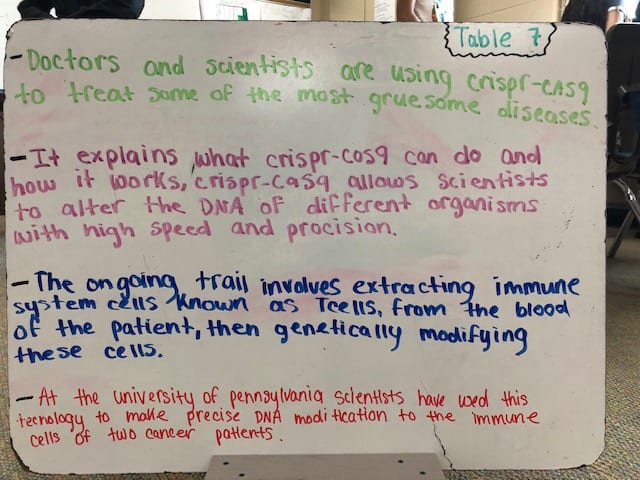 Table 7
- Doctors and scientists are using crispr-CAS9
to treat some of the most gruesome diseases
- It explains what crispr-cos9 can do and
how it works, crispr-cas9 allows scientists
to alter the DNA of different organisms
with high speed and procision.
- The ongoing trail involves extracting immune
system cells known as Tcells, from the blood
of the patient, then genetically modifying
these cells.
- At the university of pennsylvania scientists have used this
tecnology to make precise DNA modification to the immune
cells of two cancer patients.